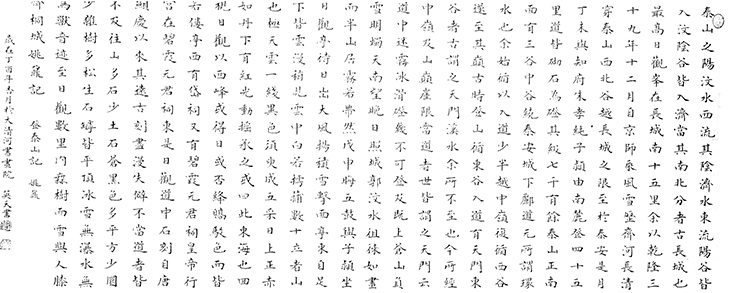 泰山之陽汶水西流其陰濟水東流陽谷皆
入汶陰谷皆入濟當其南北分者古長城也
最高日觀峯在長城南十五里余以乾隆三
十九年十二月自京師乘風雪歷齊河長清
穿泰山西北谷越長城之限至於泰安是月
丁未與知府朱孝純子潁由南麓登四十五
里道皆砌石為磴其級七千有餘泰山正南
面有三谷中谷繞泰安城下酈道元所謂環
水也余始循以入道少半越中嶺復循西谷
遂至其巔古時登山循東谷入道有天門東
谷者古謂之天門溪水余所不至也今所經
中嶺及山巔崖限當道者世皆謂之天門云
道中迷霧冰滑磴幾不可登及既上蒼山負
雪明燭天南望晚日照城郭汶水徂徠如畫
而半山居霧若帶然戊申晦五鼓與子潁坐
日觀亭待日出大風揚積雪擊面亭東自足
下皆雲漫稍見雲中白若摴蒱數十立者山
也極天雲一線異色須臾成五采日上正赤
如丹下有紅光動搖承之或曰此東海也回
視日觀以西峰或得日或否絳皜駁色而皆
若僂亭西有岱祠又有碧霞元君祠皇帝行
宮在碧霞元君祠東是日觀道中石刻自唐
顯慶以來其遠古刻盡漫失僻不當道者皆
不及往山多石少土石蒼黑色多平方少圜
少雜樹多松生石罅皆平頂冰雪無瀑水無
鳥獸音迹至日觀數里內無樹而雪與人膝
齊桐城姚鼐記 登泰山記 姚鼐
歲在丁酉年月於大清河書畫院 英夫書